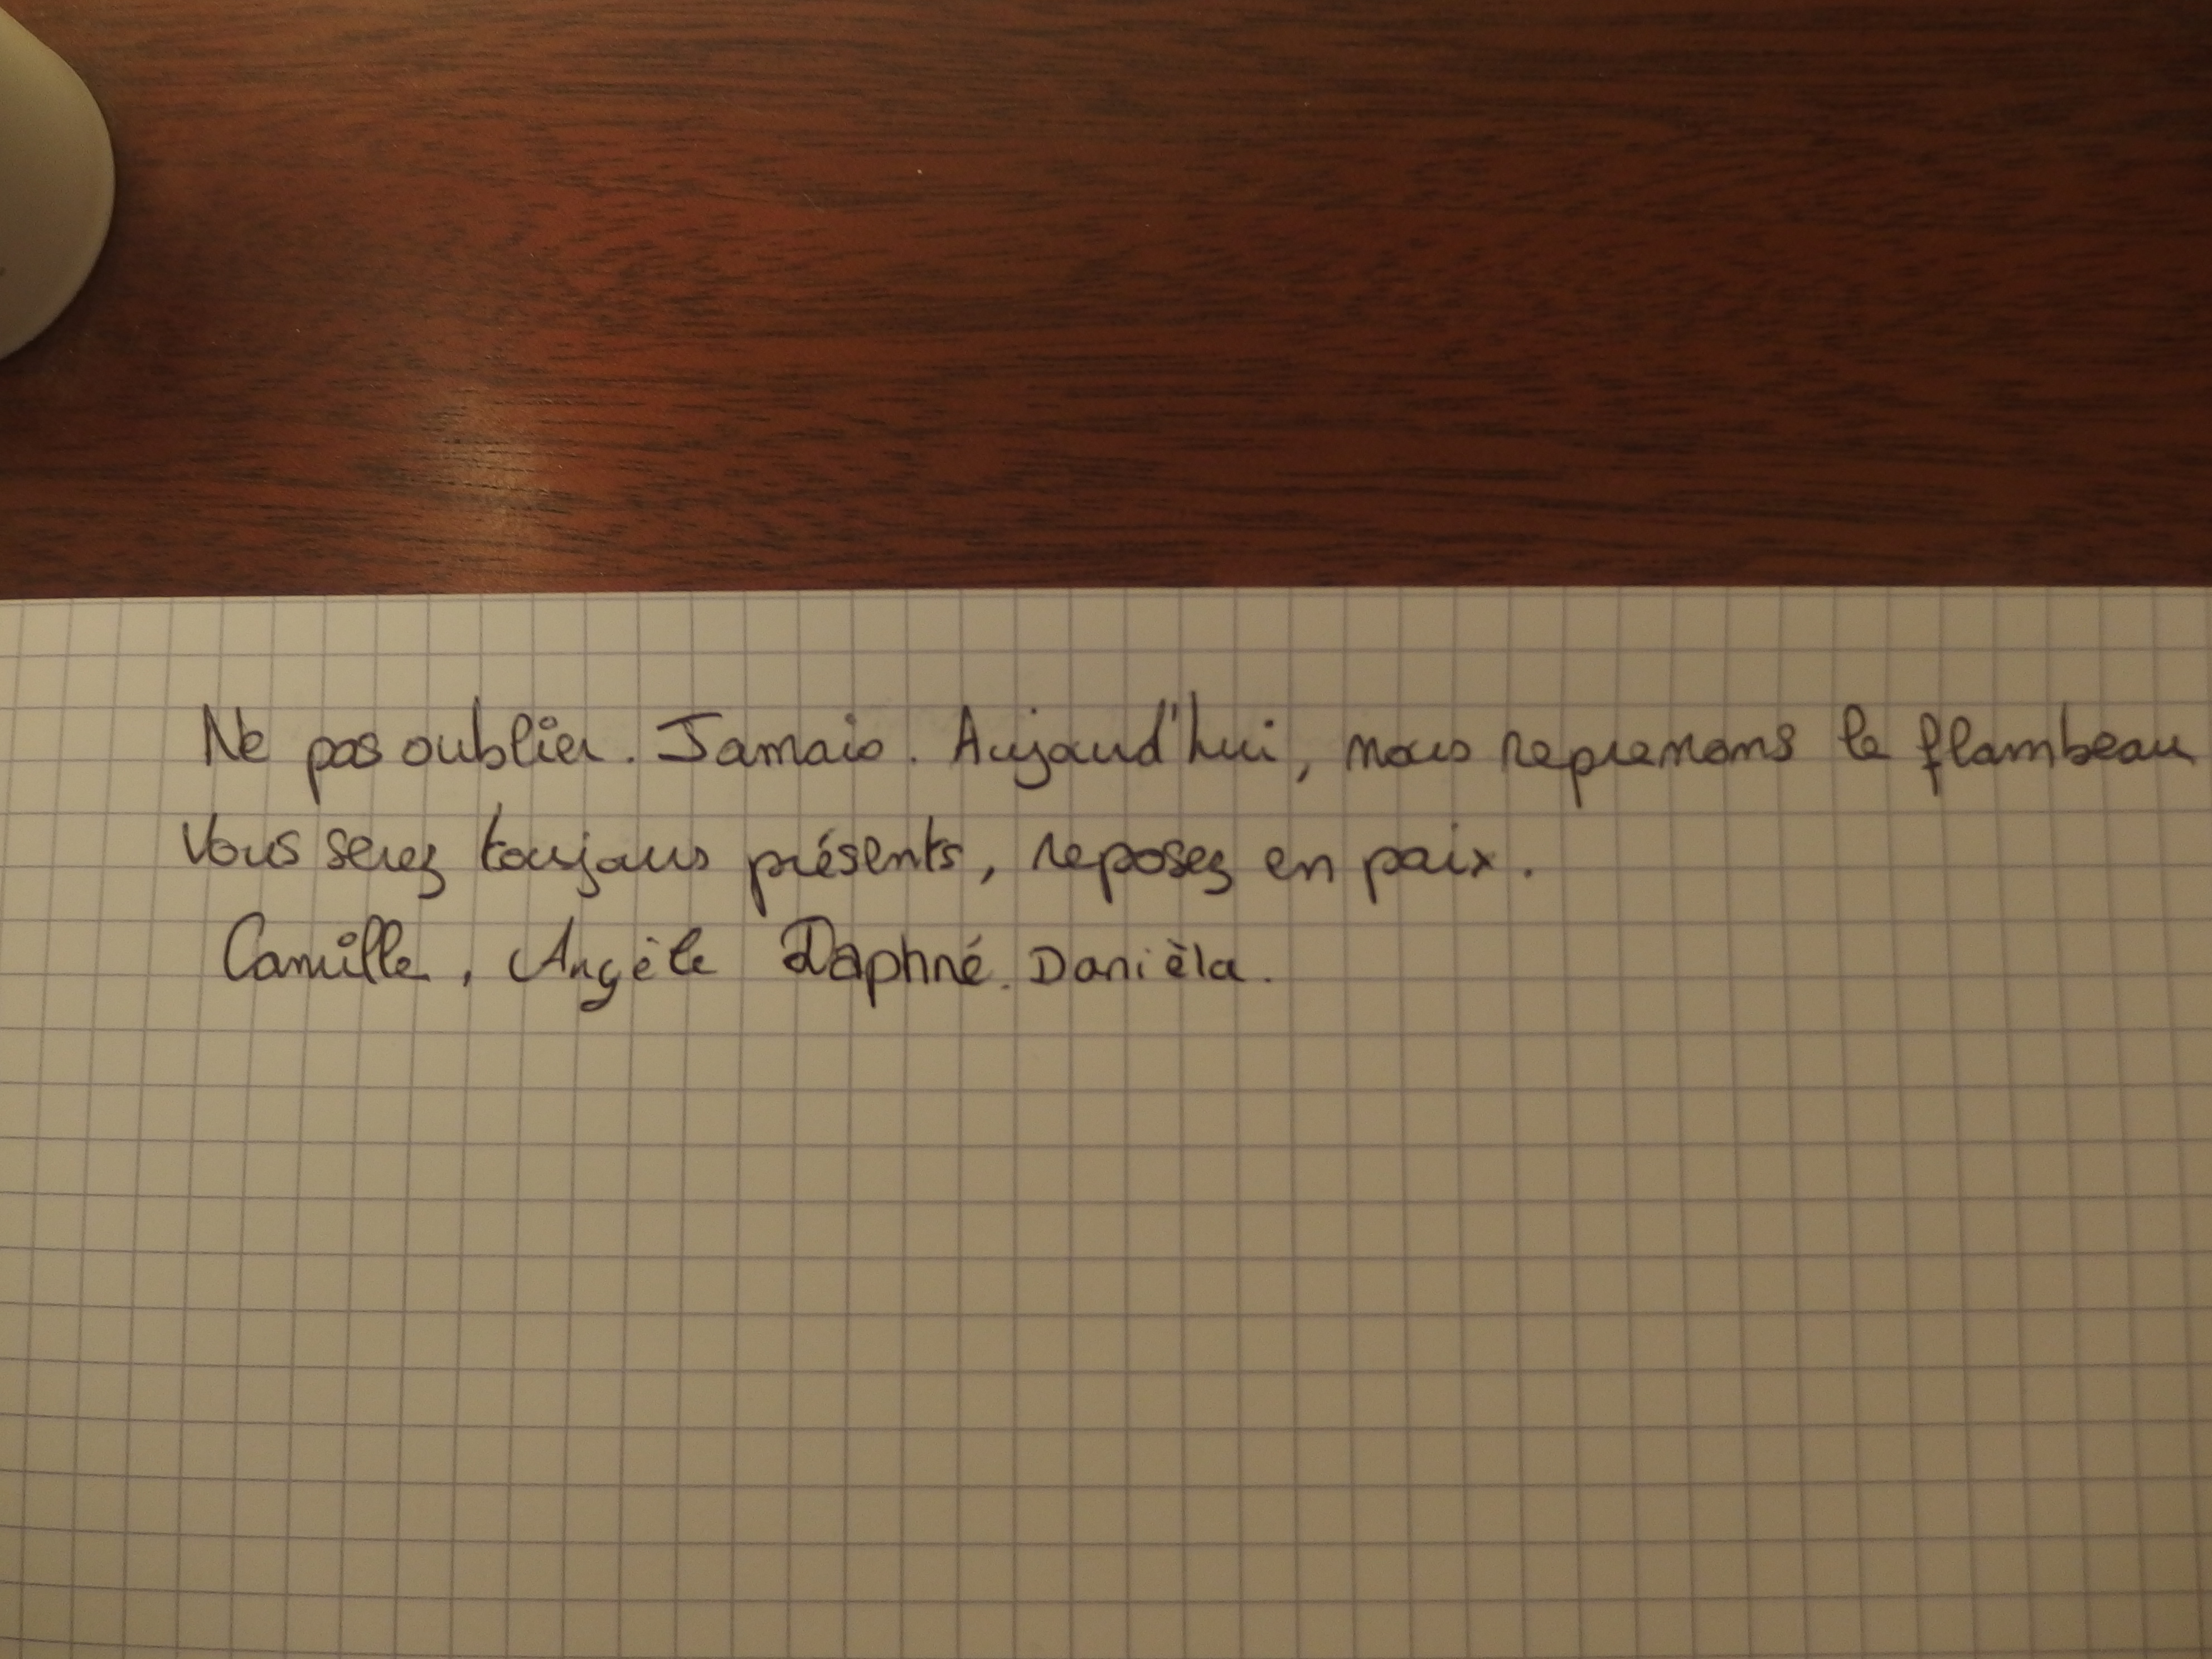 Ne pas oublier. Jamais. Aujourd'hui, nous reprenons le flambeau
Vous serez toujours présents, reposez en paix.
Camille, Angèle Daphné. Danièla.